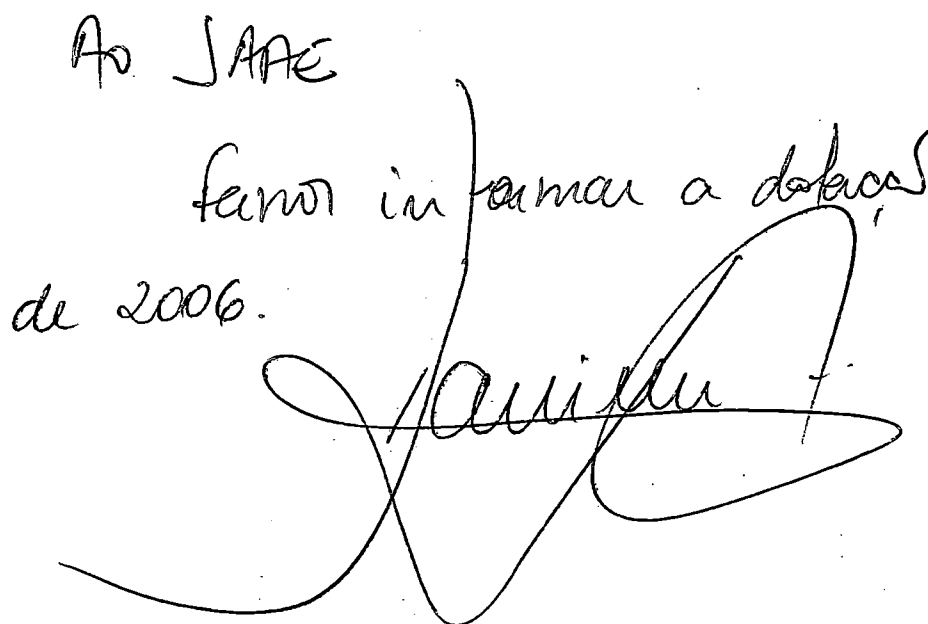 Ao SAAE
favor informar a dotação
de 2006.